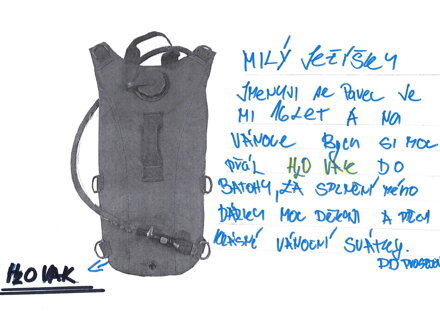 MILÝ JEŽÍŠKU
JMENUJI SE PAVEL JE
MI 16 LET A NA
VÁNOCE BYCH SI MOC
PŘÁL H2O VAK DO
BATOHU, ZA SPLNĚNÍ MÉHO
DÁRKU MOC DĚKUJI A PŘEJI
KRÁSNÉ VÁNOČNÍ SVÁTKY.
H2O VAK